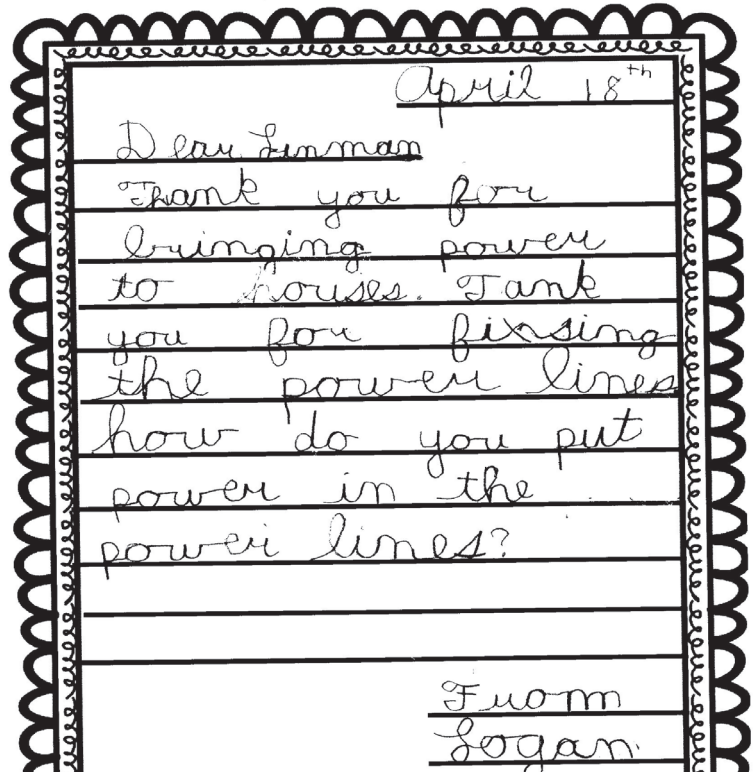 April 18th
Dear Linman
Thank you for
bringing power
to houses. Tank
you for fixsing
the power lines
how do you put
power in the
power lines?
From
Logan